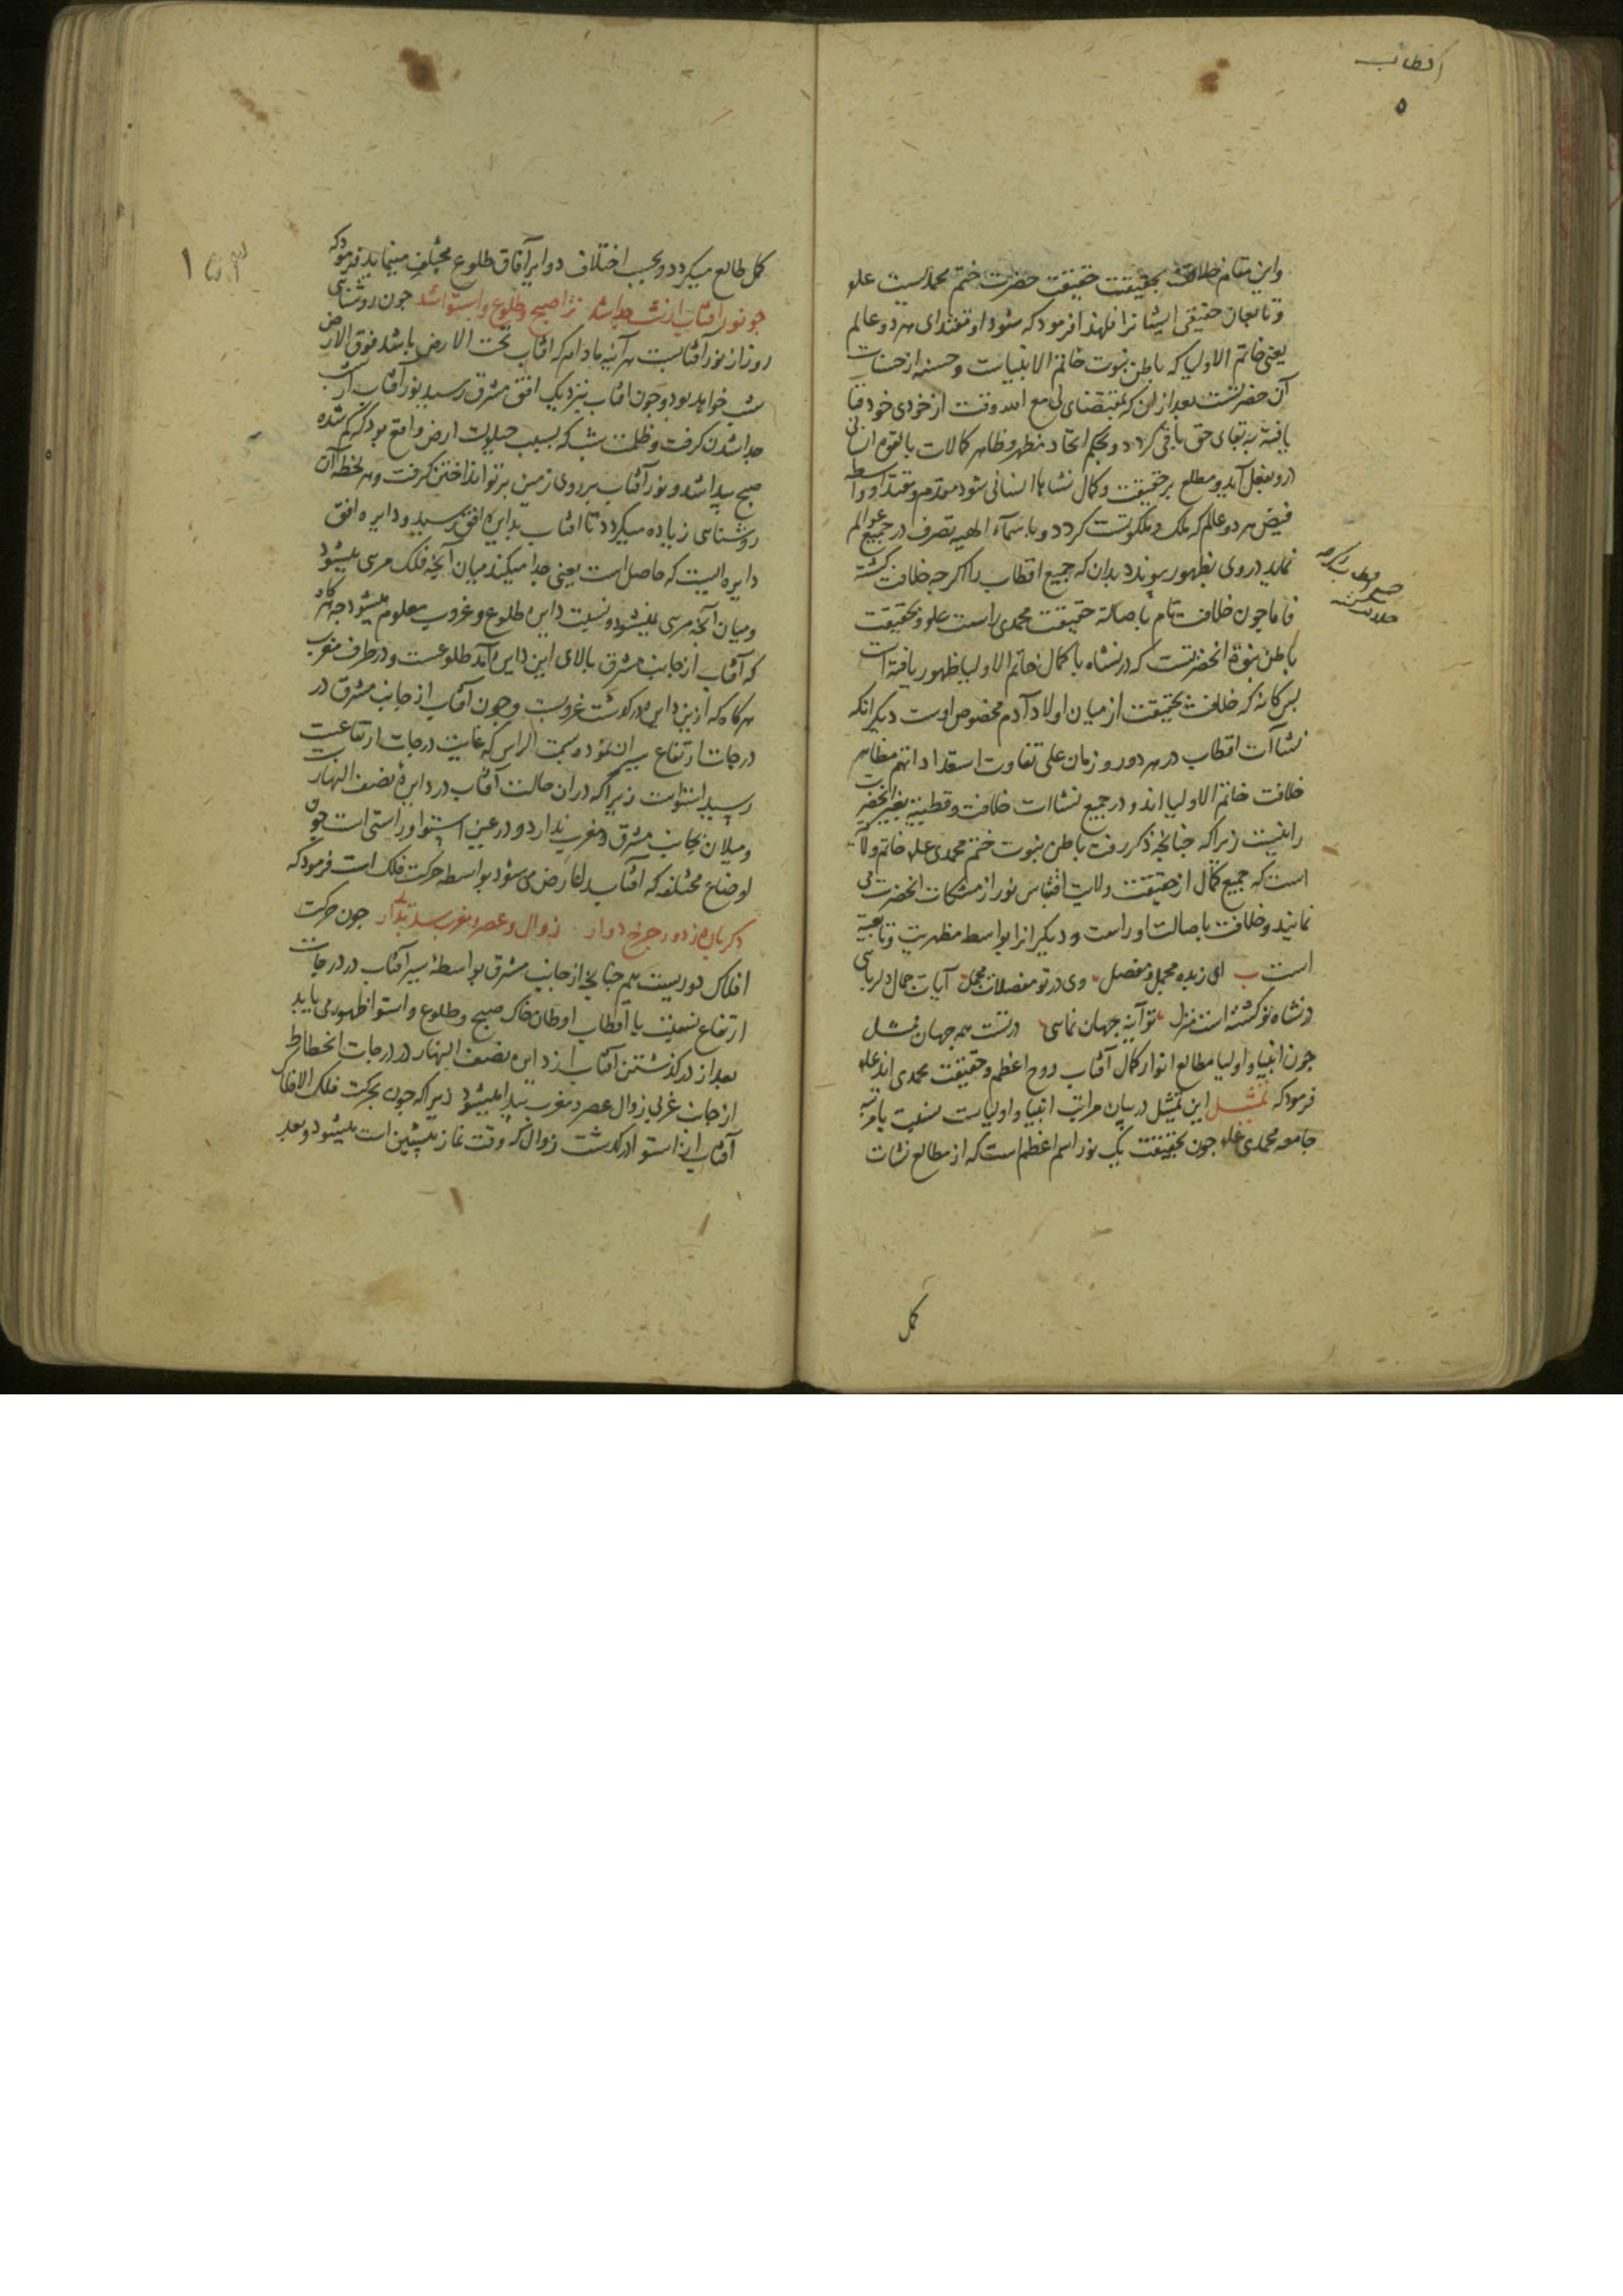 اقطاب
۵
واین مقام خلافت بحقیقت حقیقت حضرت ختم محمدیست علم
و تابعان حقیقی ایشانرا فلهذا فرمود که شود او مقتدای هر دو عالم
یعنی خاتم الاولیا که باطن نبوت خاتم الانبیاست و حسنه از حسنات
آن حضرتست بعد ازان که بمقتضای لی مع الله وقت از خودی خود فنا
یافته به بقای حق باقی گردد و بحکم اتحاد مظهر و ظاهر کمالات بالقوه انسانی
درو بفعل آید و مطلع بر حقیقت و کمال نشاها انسانی شود مقدم و مقتدا و واسطه
فیض هر دو عالم که ملک و ملکوتست کردد و با سماء الهیه تصرف در جمیع عوالم
نماید در وی بظهور پیوندد بدان که جمیع اقطاب را اکرچه خلافت کشته
فاما چون خلافت تام باصالة حقیقت محمدی راست علم و حقیقت
باطن نبوة انحضرتست که در نشاه با کمال خاتم الاولیا ظهور یافته است
پس کانه که خلافت بحقیقت از میان اولاد آدم مخصوص اوست دیکرانکه
نشاآت اقطاب در هر دور و زمان علی تفاوت استعداداتهم مظاهر
خلافت خاتم الاولیا اند و در جمیع نشاات خلافت و قطبیة بغیر آنحضرت
را نیست زیرا که چنانچه ذکر رفت باطن نبوت ختم محمدی علم خاتم ولایة
است که جمیع کمال از حقیقت ولایت اقتباس نور از مشکات انحضرت می
نمایند و خلافت باصالت اوراست و دیکرانرا بواسطه مظهریت و تابعیة
است ب ای زبده مجمل و مفصل وی در تو مفصلات مجمل آیات جمال دلربایی
در نشاه تو کشته است منزل تو آینه جهان نمایی در تست همه جهان ممثل
چون انبیا و اولیا مطالع انوار کمال آفتاب روح اعظم و حقیقت محمدی اند علم
فرمود که تمثیل این تمثیل در بیان مراتب انبیا و اولیاست بنسبت با مرتبه
جامعه محمدی علم چون بحقیقت یک نور اسم اعظم ست که از مطالع نشات
کمل
۱۵۳
کمل طالع میکردد و بحسب اختلاف دوایر آفاق طلوع مختلف مینماید فرمود که
چو نور آفتاب از شب جدا شد ترا صبح و طلوع و استوا شد چون روشنایی
روز از نور آفتابست هر آینه مادام که افتاب تحت الارض باشد فوق الارض
شب خواهد بود و چون افتاب بنزدیک افق مشرق رسید نور آفتاب از شب
جدا شدن کرفت و ظلمت شب که بسبب حیلولت ارض واقع بود که کم شده
صبح پیدا شد و نور آفتاب بر روی زمین پرتو انداختن کرفت و هر لحظه آن
روشنایی زیاده میکردد تا افتاب بدایره افق رسید و دایره افق
دایره ایست که حاصل است یعنی جدا میکند میان آنچه فلک مرئی میشود
و میان آنچه مرئی نمیشود و نسبت داین طلوع و غروب معلوم میشود چه هرکاه
که آفتاب از جانب مشرق بالای این دایره آمد طلوعست و در طرف مغرب
هرکاه که ازین دایره در کذشت غروبست و چون آفتاب از جانب مشرق در
درجات ارتفاع سیران نمود و بسمت الراس که غایت درجات ارتفاعست
رسید استواست زیرا که در ان حالت آفتاب در دایرهٔ نصف النهار است
و میلان بجانب مشرق و مغرب ندارد و در عین استوا و راستی است چون
اوضاع مختلفه که آفتاب را عارض می شود بواسطه حرکت فلک است فرمود که
دکر باره ز دور چرخ دوار زوال و عصر و مغرب شد پدیدار چون حرکت
افلاک دوریست هم چنانچه از جانب مشرق بواسطهٔ سیر آفتاب در درجات
ارتفاع بنسبت با اقطاب اوطان خاک صبح و طلوع و استوا ظهور می یابد
بعد از در کذشتن افتاب از دایره نصف النهار در درجات انحطاط
از جانب غربی زوال عصر و مغرب پیدا میشود زیرا که چون بحرکت فلک الافلاک
آفتاب از استوا در کذشت زوال که وقت نماز پیشین است میشود و بعد